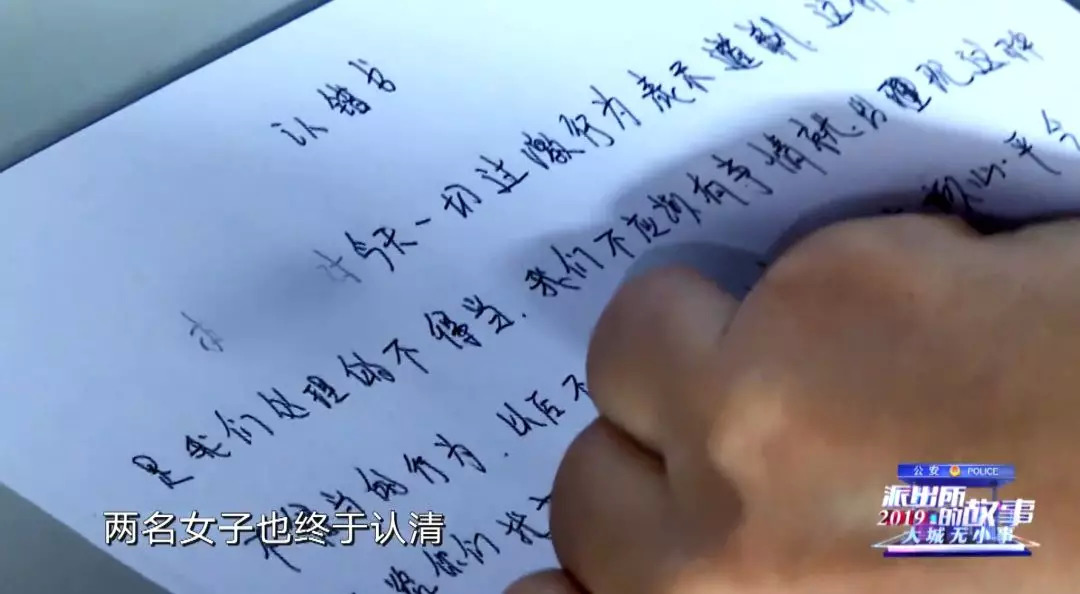 认错书
对今天一切过激行为表示道歉,这件
是我们处理的不得当,我们不应该有事情就出现这种
不得当的行为,以后不
心平气
你们
两名女子也终于认清
公安 POLICE
派出所的故事
2019 大城无小事